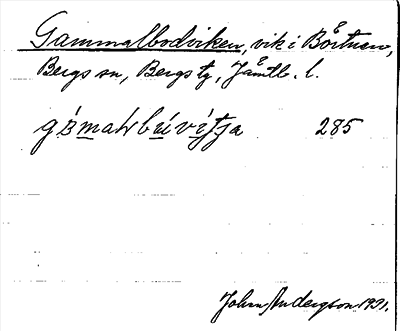 Gammalbodviken, vik i Börtnen,
Bergs sn, Bergs tg, Jämtl. l.
285
John Andersson 1931.